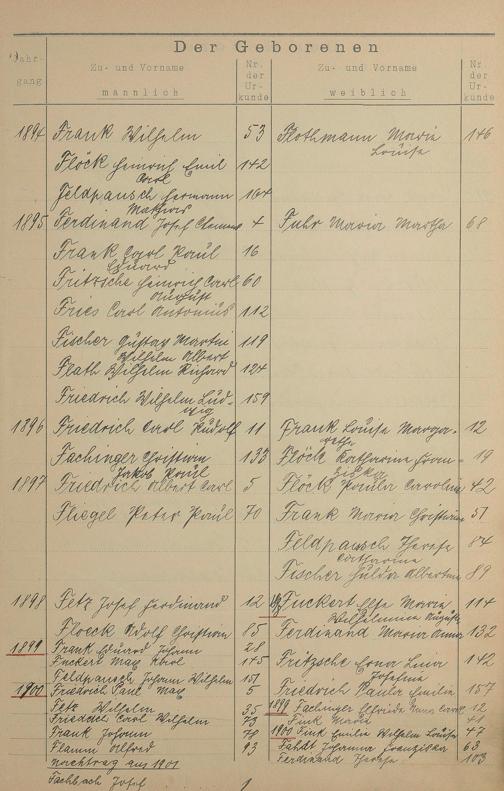 Der Geborenen
Jahr-
gang
Zu- und Vorname
männlich
Nr.
der
Ur-
kunde
Zu- und Vorname
weiblich
Nr.
der
Ur-
kunde
1894 Frank Wilhelm 53 Flothmann Maria 146
Louise
Flöck Heinrich Emil 142
Carl
Feldpausch Hermann 164
Mathias
1895 Ferdinand Josef Clemens 4 Fuhr Maria Martha 68
Frank Carl Paul 16
Eduard
Fritzsche Heinrich Carl 60
August
Fries Carl Antonius 112
Fischer Gustav Martin 119
Wilhelm Albert
Plath Wilhelm Richard 124
Friedrich Wilhelm Lud- 159
wig
1896 Friedrich Carl Rudolf 11 Frank Louise Marga- 12
rethe
Fachinger Christian 133 Flöck Katharina Fran- 19
Jakob Paul ziska
1897 Friedrich Albert Carl 5 Flöck Paula Carolina 42
Fliegel Peter Paul 70 Frank Maria Christine 51
Feldpausch Therese 84
Catharina
Fischer Hulda Albertine 89
1898 Fetz Josef Ferdinand 12 Fuckert Else Maria 114
Wilhelmina Auguste
Floeck Adolf Christian 85 Ferdinand Maria Anna 132
1899 Frank Eduard Johann 28
Fuckert Max Karl 145 Fritzsche Erna Lina 142
Josefina
Feldpausch Johann Wilhelm 151
1900 Friedrich Paul Max 5 Friedrich Paula Emilia 157
Fetz Wilhelm 35 1899 Fachinger Elfriede Anna 12
Friedrich Carl Wilhelm 73 Fink Maria 41
Frank Johann 78 1900 Fink Emilia Wilhelm Louise 47
Flamm Alfred 93 Fahdt Johanna Franziska 63
Nachtrag aus 1901 Ferdinand Therese 103
Fachbach Josef 1